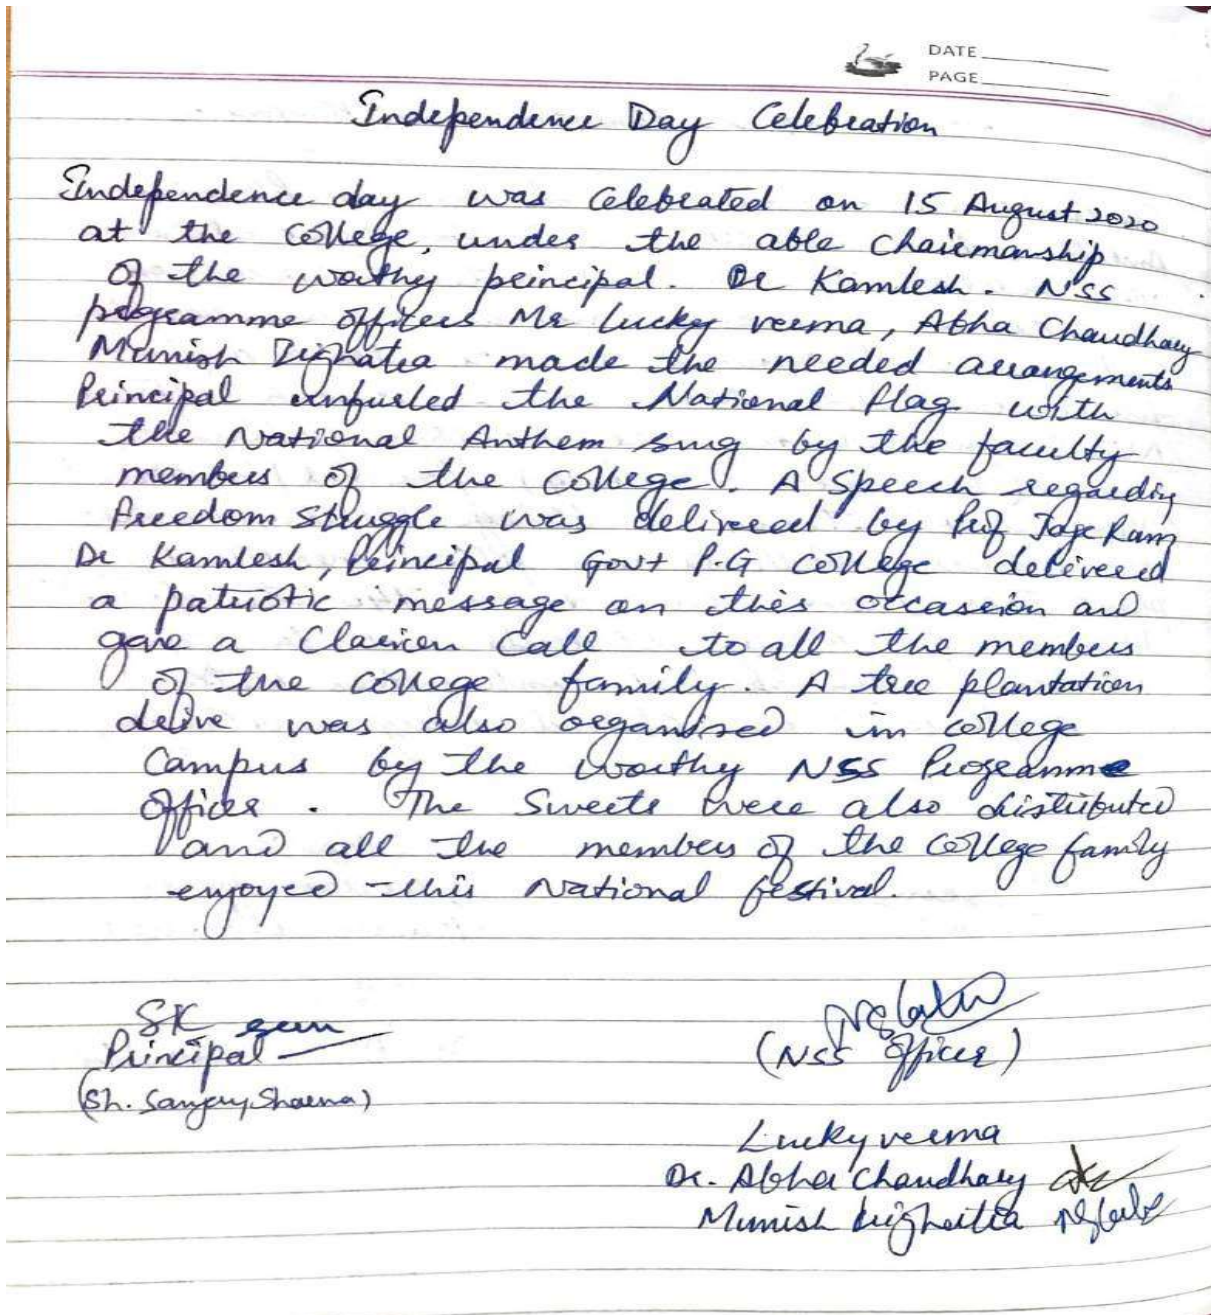 DATE
PAGE
Independence Day Celebration
Independence day was Celebrated on 15 August 2020
at the College, under the able Chairmanship
of the worthy principal. Dr Kamlesh. NSS
programme officers Mr Lucky verma, Abha Chaudhary
Munish made the needed arrangements
Principal unfurled the National flag with
the National Anthem sung by the faculty
members of the College. A Speech regarding
freedom Struggle was delivered by Prof Ram
Dr Kamlesh, Principal Govt P.G College delivered
a patriotic message on this occasion and
gave a Clarion Call to all the members
of the college family. A tree plantation
drive was also organised in College
Campus by the worthy NSS Programme
officer. The Sweets were also distributed
and all the members of the College family
enjoyed this National festival.
SK
Principal
(Sh. Sanjay Sharma)
(NSS Officer)
Lucky verma
Dr. Abha Chaudhary
Munish